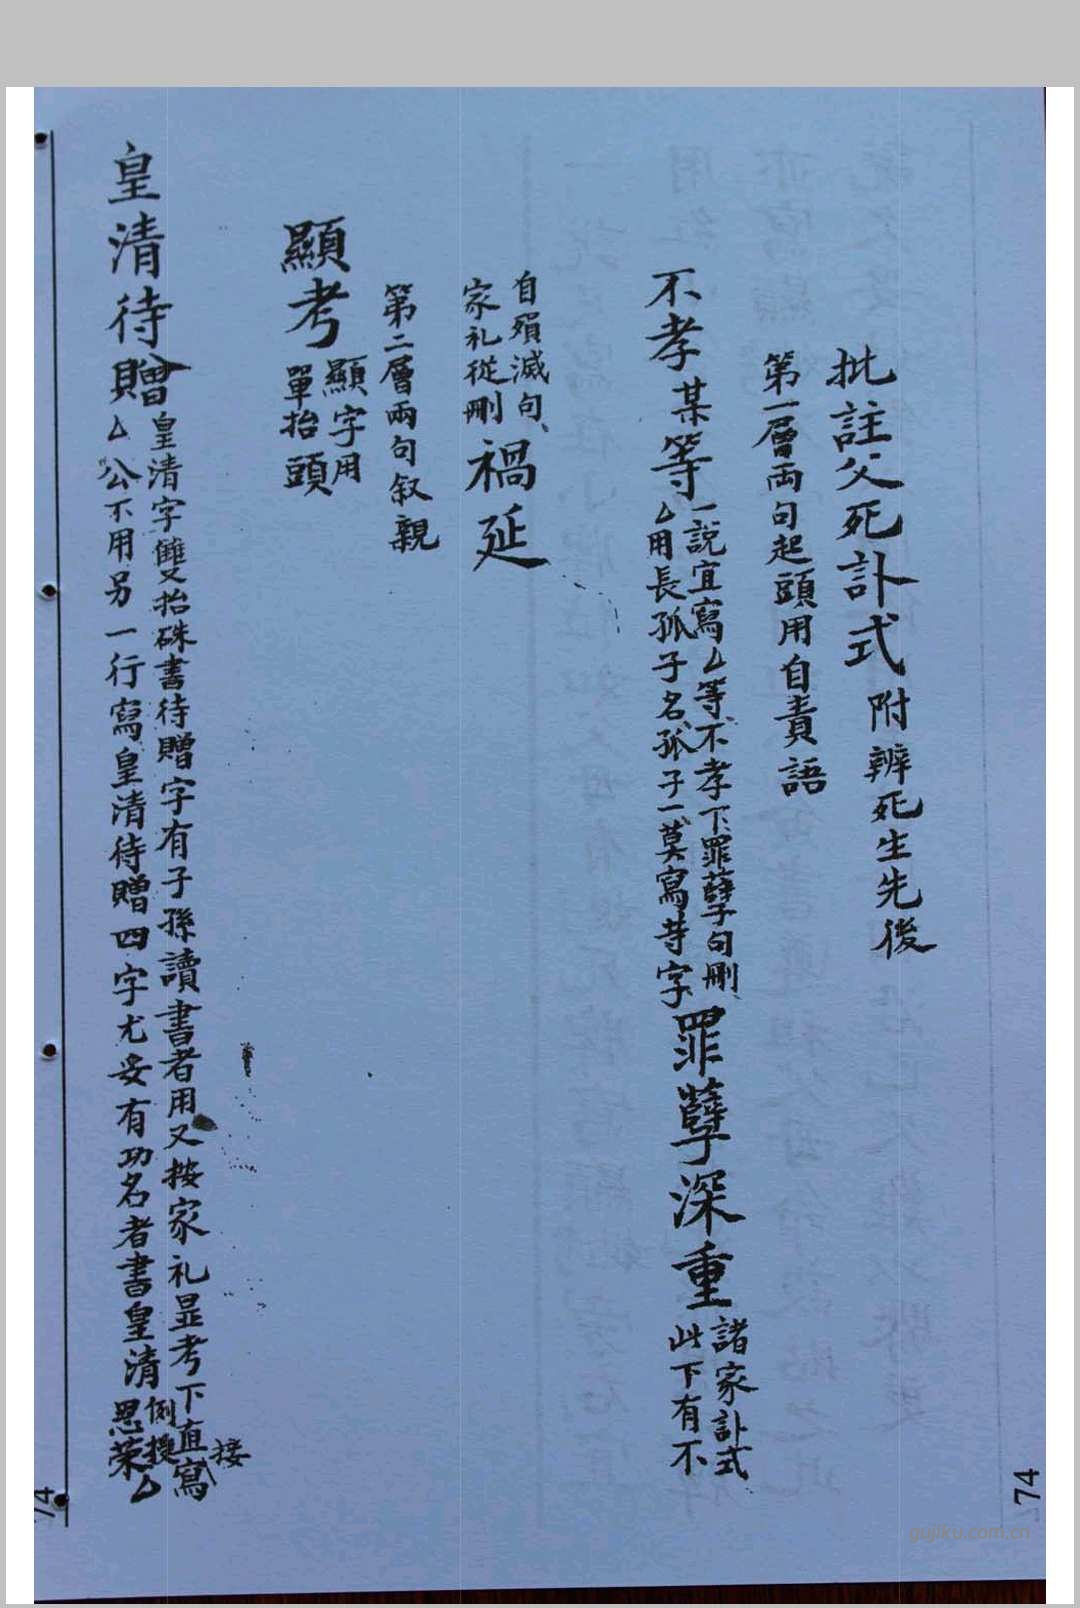 批註父死訃式 附辨死生先後
第一層兩句起頭用自責語
不孝某等 一說宜寫厶等、不孝下罪孽句刪、
厶用長孤子名、孤子一、莫寫等字、 罪孽深重 諸家訃式
此下有不
自殞滅句、
家礼從刪 禍延
第二層兩句叙親
顯考 顯字用
單抬頭
皇清待贈 皇清字雙抬硃書待贈字有子孫讀書者用又按家礼显考下直寫
厶公不用另一行寫皇清待贈四字尤妥有功名者書皇清 例授
恩榮厶
接
74
74
gujiku.com.cn